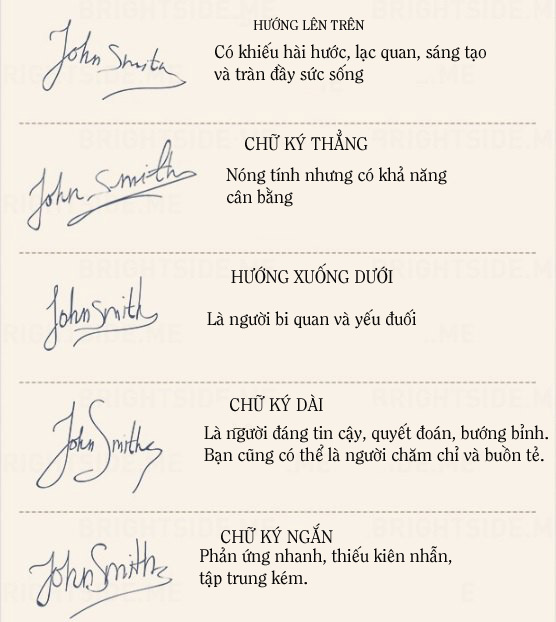 HƯỚNG LÊN TRÊN
John Smith
Có khiếu hài hước, lạc quan, sáng tạo
và tràn đầy sức sống
CHỮ KÝ THẲNG
John Smith
Nóng tính nhưng có khả năng
cân bằng
HƯỚNG XUỐNG DƯỚI
John Smith
Là người bi quan và yếu đuối
CHỮ KÝ DÀI
John Smith
Là người đáng tin cậy, quyết đoán, bướng bỉnh.
Bạn cũng có thể là người chăm chỉ và buồn tẻ.
CHỮ KÝ NGẮN
John Smith
Phản ứng nhanh, thiếu kiên nhẫn,
tập trung kém.
BRIGHTSIDE.ME